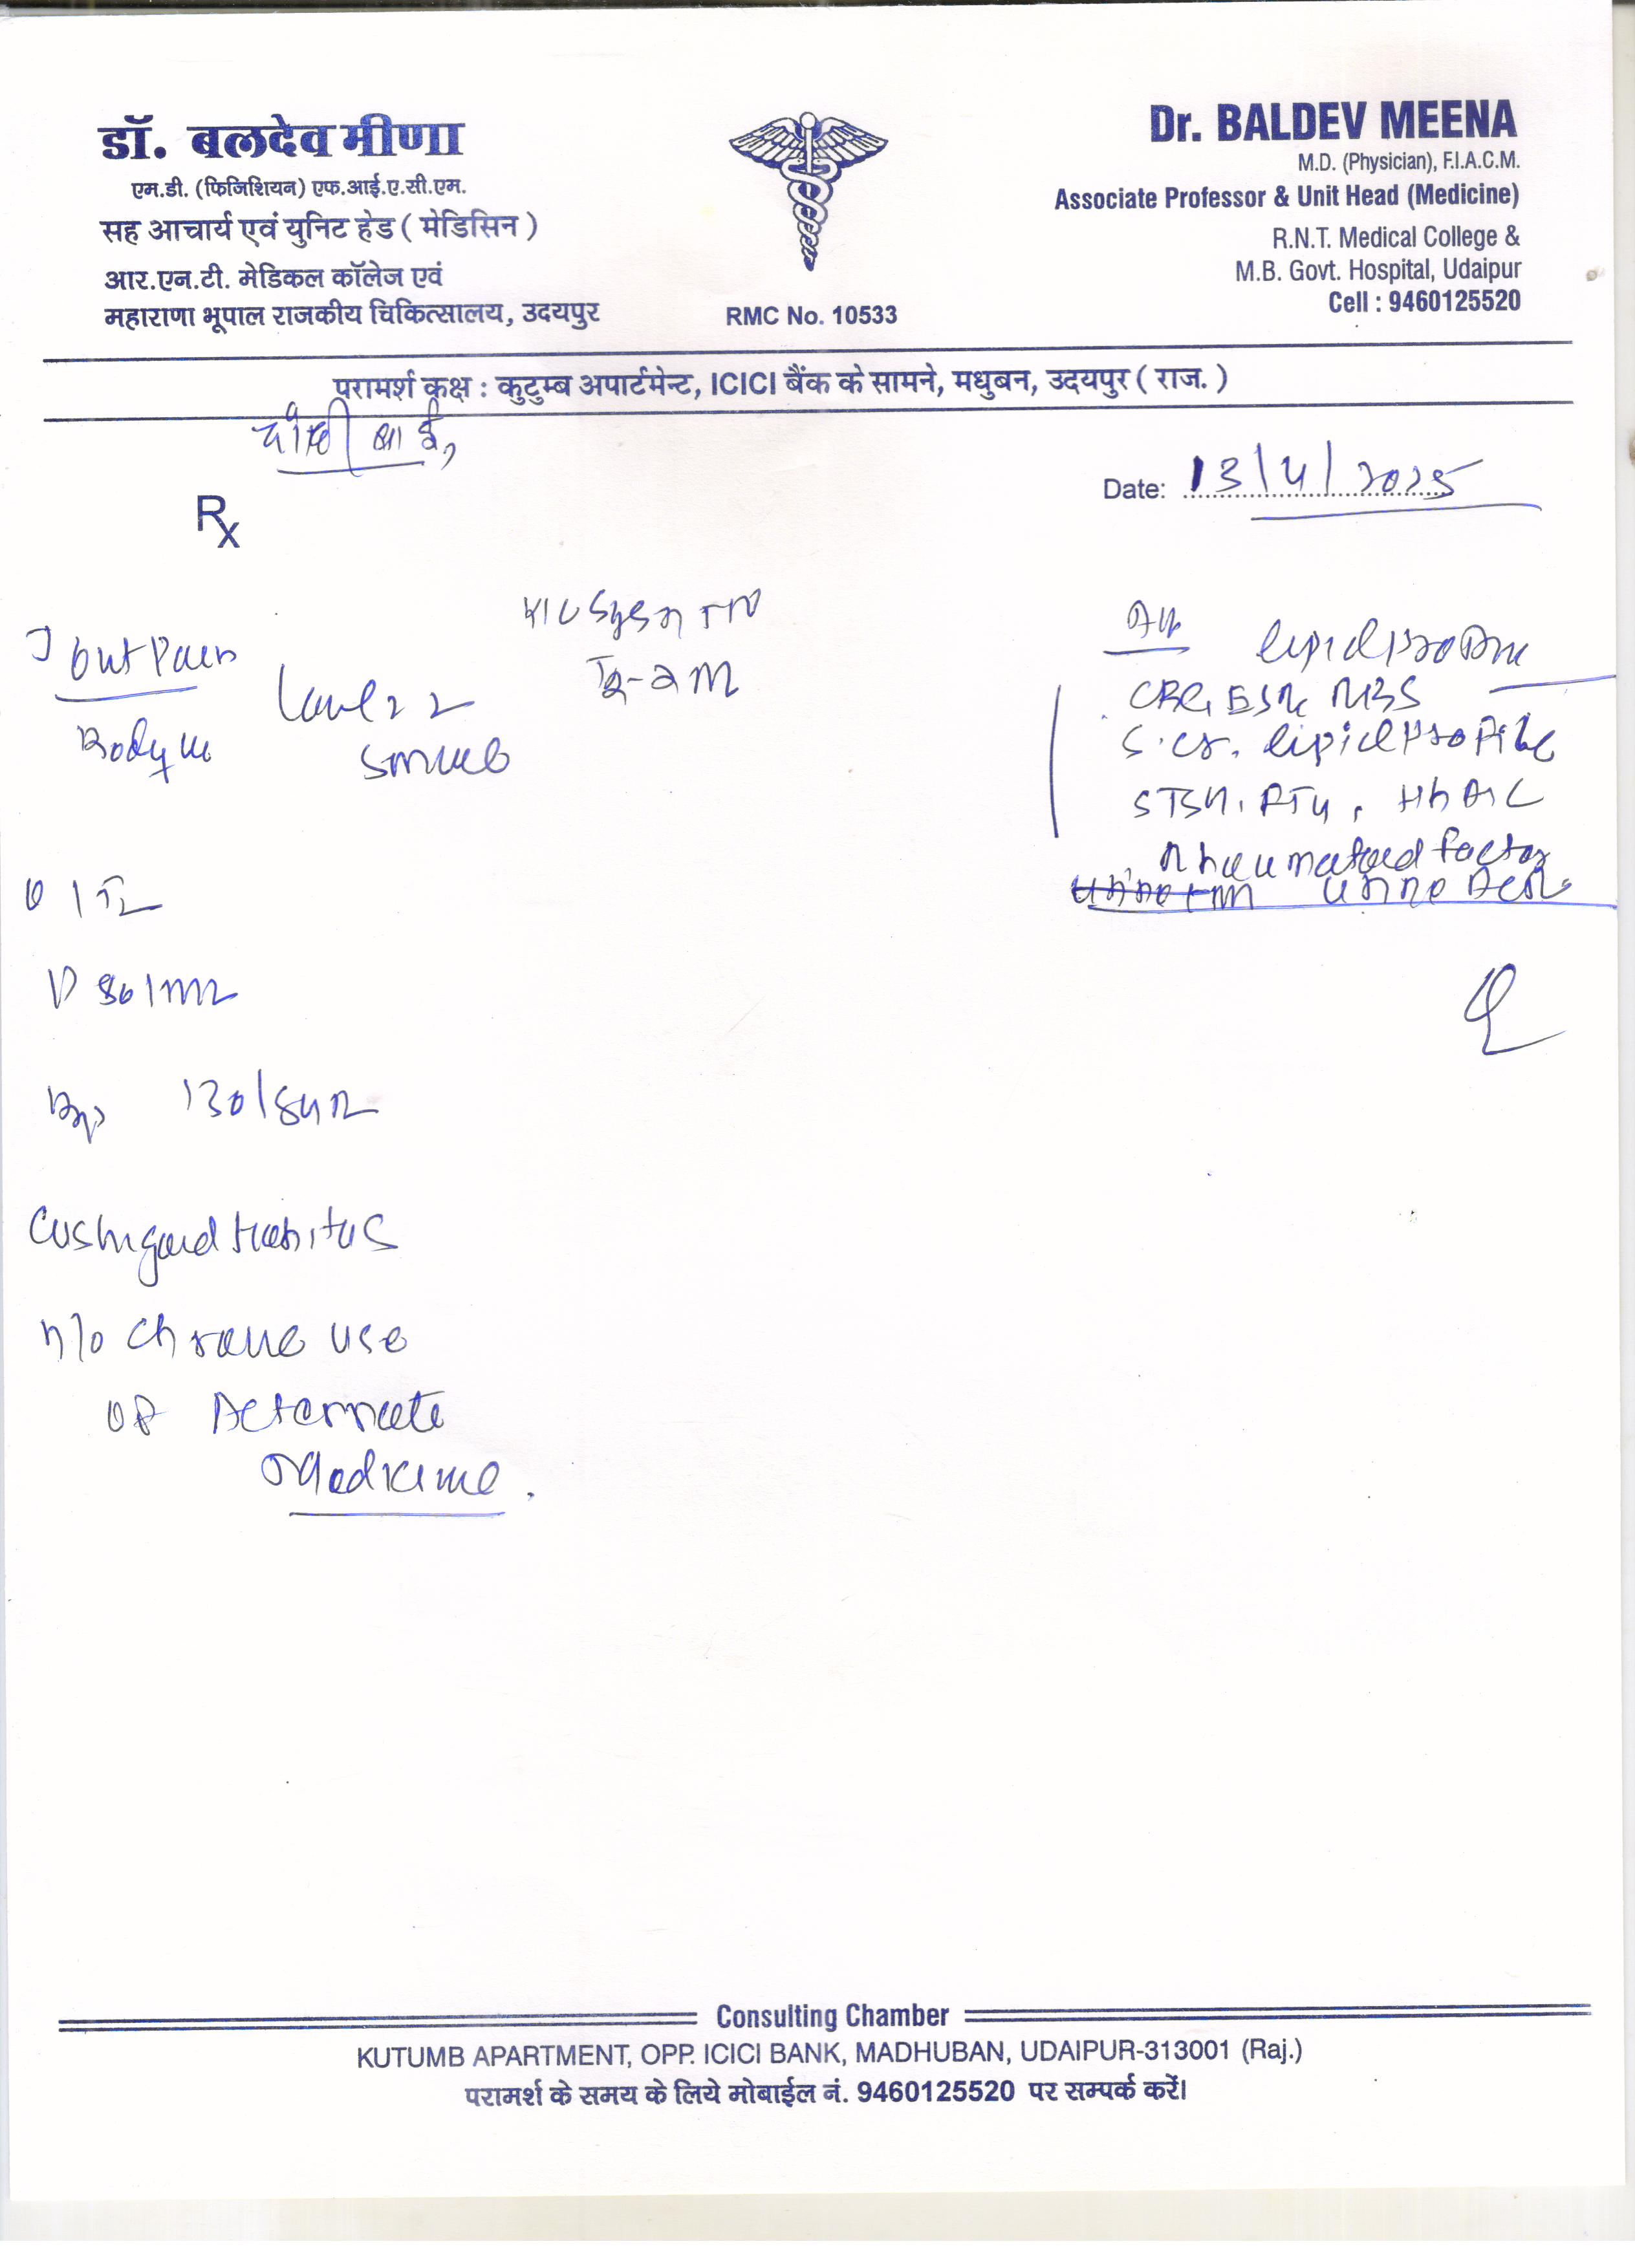 डॉ. बलदेव मीणा
एम.डी. (फिजिशियन) एफ.आई.ए.सी.एम.
सह आचार्य एवं युनिट हेड ( मेडिसिन )
आर.एन.टी. मेडिकल कॉलेज एवं
महाराणा भूपाल राजकीय चिकित्सालय, उदयपुर
RMC No. 10533
Dr. BALDEV MEENA
M.D. (Physician), F.I.A.C.M.
Associate Professor & Unit Head (Medicine)
R.N.T. Medical College &
M.B. Govt. Hospital, Udaipur
Cell : 9460125520
परामर्श कक्ष : कुटुम्ब अपार्टमेन्ट, ICICI बैंक के सामने, मधुबन, उदयपुर ( राज. )
बाई,
Rx
Date: 13/4/2025
Joint Pain
Body
since
Adv
lipid
CBC, ESR, RBS
S.Cr. lipid profile
HbA1C
Rheumatoid factor
BP 130/84
Cushingoid Habitus
H/O Chronic use
of Alternate
Medicine.
Consulting Chamber
KUTUMB APARTMENT, OPP. ICICI BANK, MADHUBAN, UDAIPUR-313001 (Raj.)
परामर्श के समय के लिये मोबाईल नं. 9460125520 पर सम्पर्क करें।